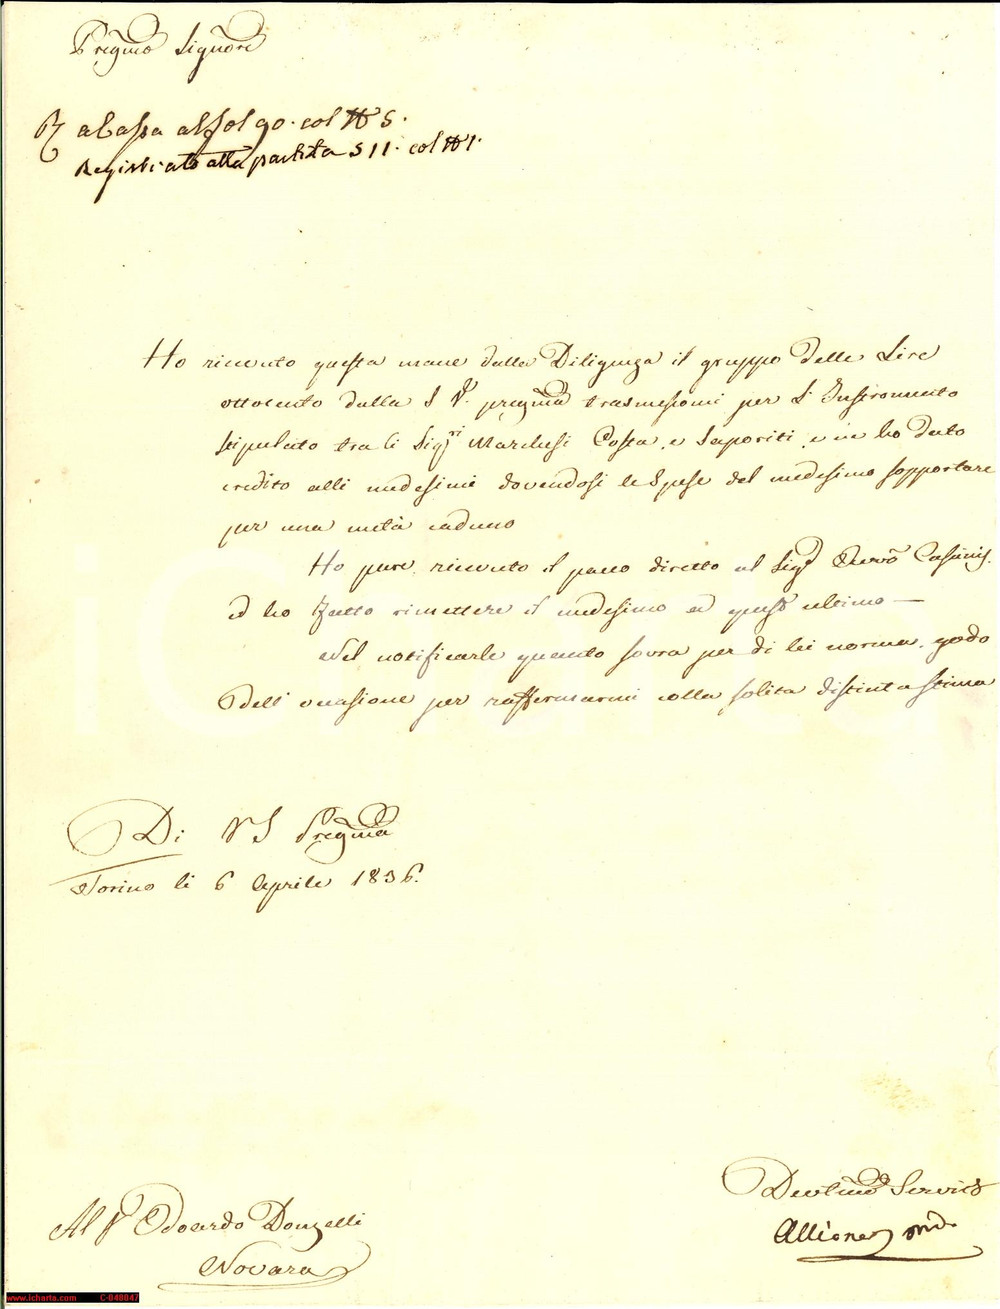 Pregmo Signore
a Cassa al fol 90. col N 5.
Registrato alla partita 511. col N 1.
Ho ricevuto questa mane dalla Diligenza il gruppo delle Lire
ottocento dalla S V. pregma trasmessomi per l'Instromento
stipulato tra li Sigri Marchesi Costa, e Saporiti, e ne ho dato
credito alli medesimi dovendosi le Spese del medesimo sopportare
per una metà caduno
Ho pure ricevuto il pacco diretto al Sigr
ed ho fatto rimettere il medesimo a quest'ultimo —
Nel notificarle quanto sovra per di lei norma, godo
dell'occasione per raffermarmi colla solita distinta stima
Di V S Pregma
Torino li 6 Aprile 1836.
Devotmo Servite
Allione
Al Sr Edoardo Donzelli
Novara
www.icharta.com C-048047
iCharta